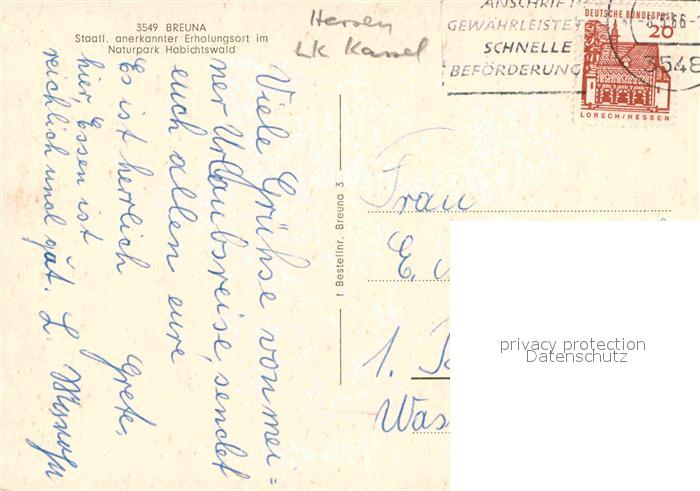 3549 BREUNA
Staatl. anerkannter Erholungsort im
Naturpark Habichtswald
Hessen
LK Kassel
ANSCHRIFT
GEWÄHRLEISTET
SCHNELLE
BEFÖRDERUNG
DEUTSCHE BUNDESPOST
20
LORSCH/HESSEN
3548
Viele Grühse von mei=
ner Urlaubsreise, sendet
euch allen eure
Grete,
Es ist herrlich
hier, Essen ist
reichlich und gut. L.
f Bestellnr. Breuna 3
Frau
E.
1.
Was
privacy protection
Datenschutz